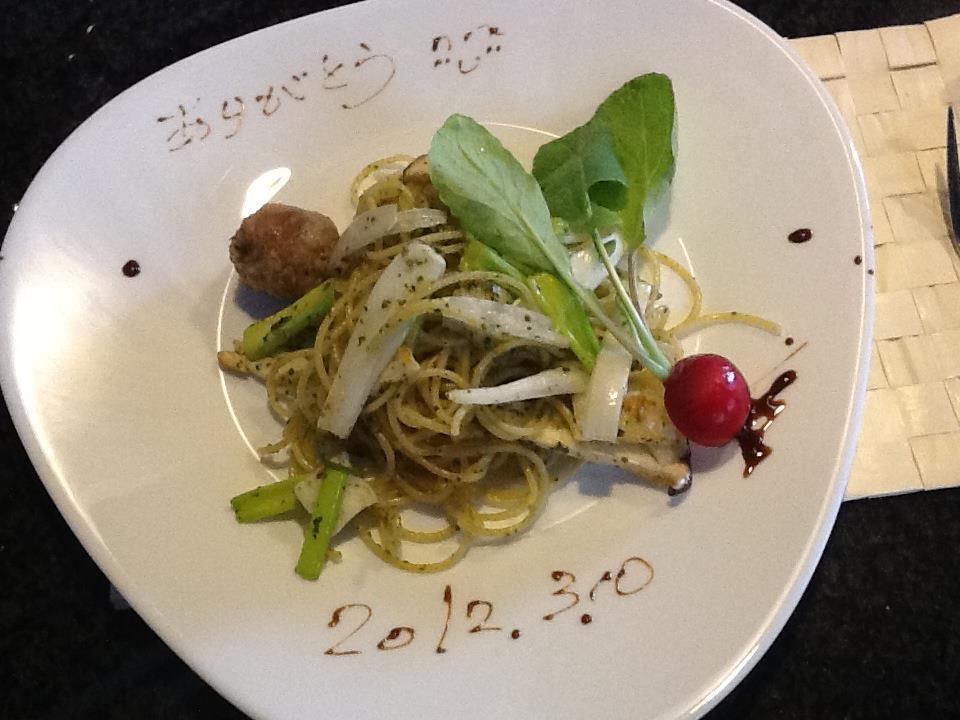 ありがとう
2012.3.10